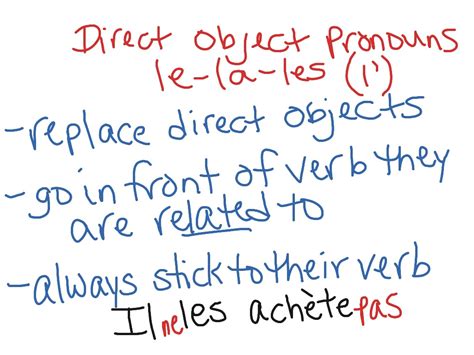 Direct Object Pronouns
le-la-les (l')
-replace direct objects
-go in front of verb they
are related to
-always stick to their verb
Il ne les achète pas